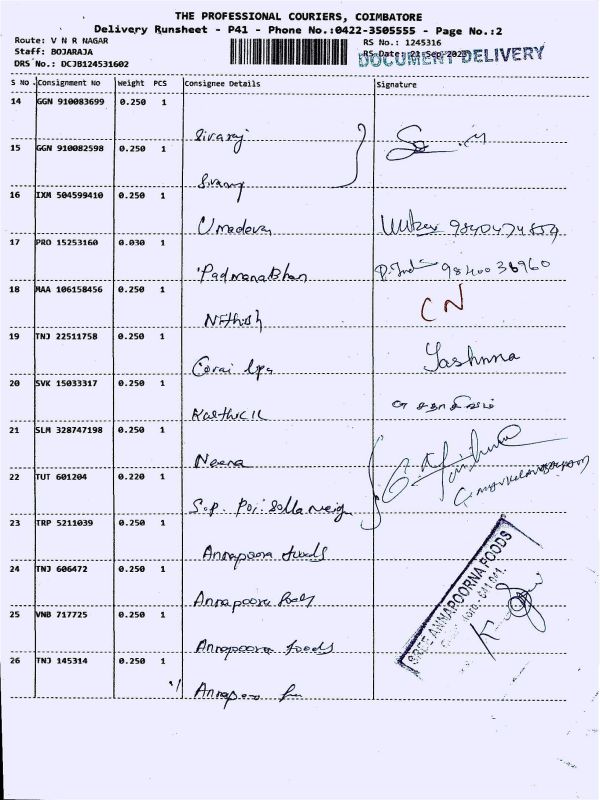 THE PROFESSIONAL COURIERS, COIMBATORE
Delivery Runsheet - P41 - Phone No.:0422-3505555 - Page No.:2
Route: V N R NAGAR
RS No.: 1245316
Staff: BOJARAJA
DOCUMENT DELIVERY
DRS No.: DCJB124531602
S No Consignment No Weight PCS Consignee Details Signature
14 GGN 910083699 0.250 1
Sivaraj
15 GGN 910082598 0.250 1
Sivaraj
16 IXM 504599410 0.250 1
Umadevi
17 PRO 15253160 0.030 1
PadmanaBhan 9840036960
18 MAA 106158456 0.250 1
Nithish CN
19 TNJ 22511758 0.250 1
20 SVK 15033317 0.250 1
Karthick
21 SLM 328747198 0.250 1
Neena
22 TUT 601204 0.220 1
S.P.
23 TRP 5211039 0.250 1
Annapoora foods
24 TNJ 606472 0.250 1
Annapoora foods
SREE ANNAPOORNA FOODS
25 VNB 717725 0.250 1
Annapoora foods
26 TNJ 145314 0.250 1